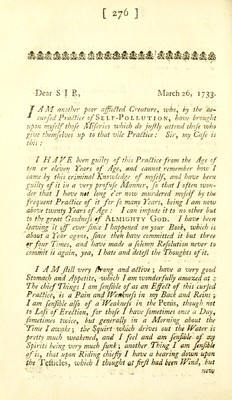 [ 276 ]
Dear SIR, March 26, 1733.
I AM another poor afflicted Creature, who, by the ac-
cursed Practice of SELF-POLLUTION, have brought
upon myself those Miseries which do justly attend those who
give themselves up to that vile Practice: Sir, my Case is
this:
I HAVE been guilty of this Practice from the Age of
ten or eleven Years of Age, and cannot remember how I
came by this criminal Knowledge of myself, and have been
guilty of it in a very profuse Manner, so that I often won-
der that I have not long e'er now murdered myself by the
frequent Practice of it for so many Years, being I am now
above twenty Years of Age: I can impute it to no other but
to the great Goodness of ALMIGHTY GOD. I have been
leaving it off ever since I happened on your Book, which is
about a Year agone, since then have committed it but three
or four Times, and have made a solemn Resolution never to
commit it again, yea, I hate and detest the Thoughts of it.
I AM still very strong and active; have a very good
Stomach and Appetite, which I am wonderfully amazed at:
The chief Thing I am sensible of as an Effect of this cursed
Practice, is a Pain and Weakness in my Back and Reins;
I am sensible also of a Weakness in the Penis, though not
to Loss of Erection, for those I have sometimes once a Day,
sometimes twice, but generally in a Morning about the
Time I awake; the Squirt which drives out the Water is
pretty much weakned, and I feel and am sensible of my
Spirits being very much sunk; another Thing I am sensible
of is, that upon Riding chiefly I have a bearing down upon
the Testicles, which I thought at first had been Wind, but
now